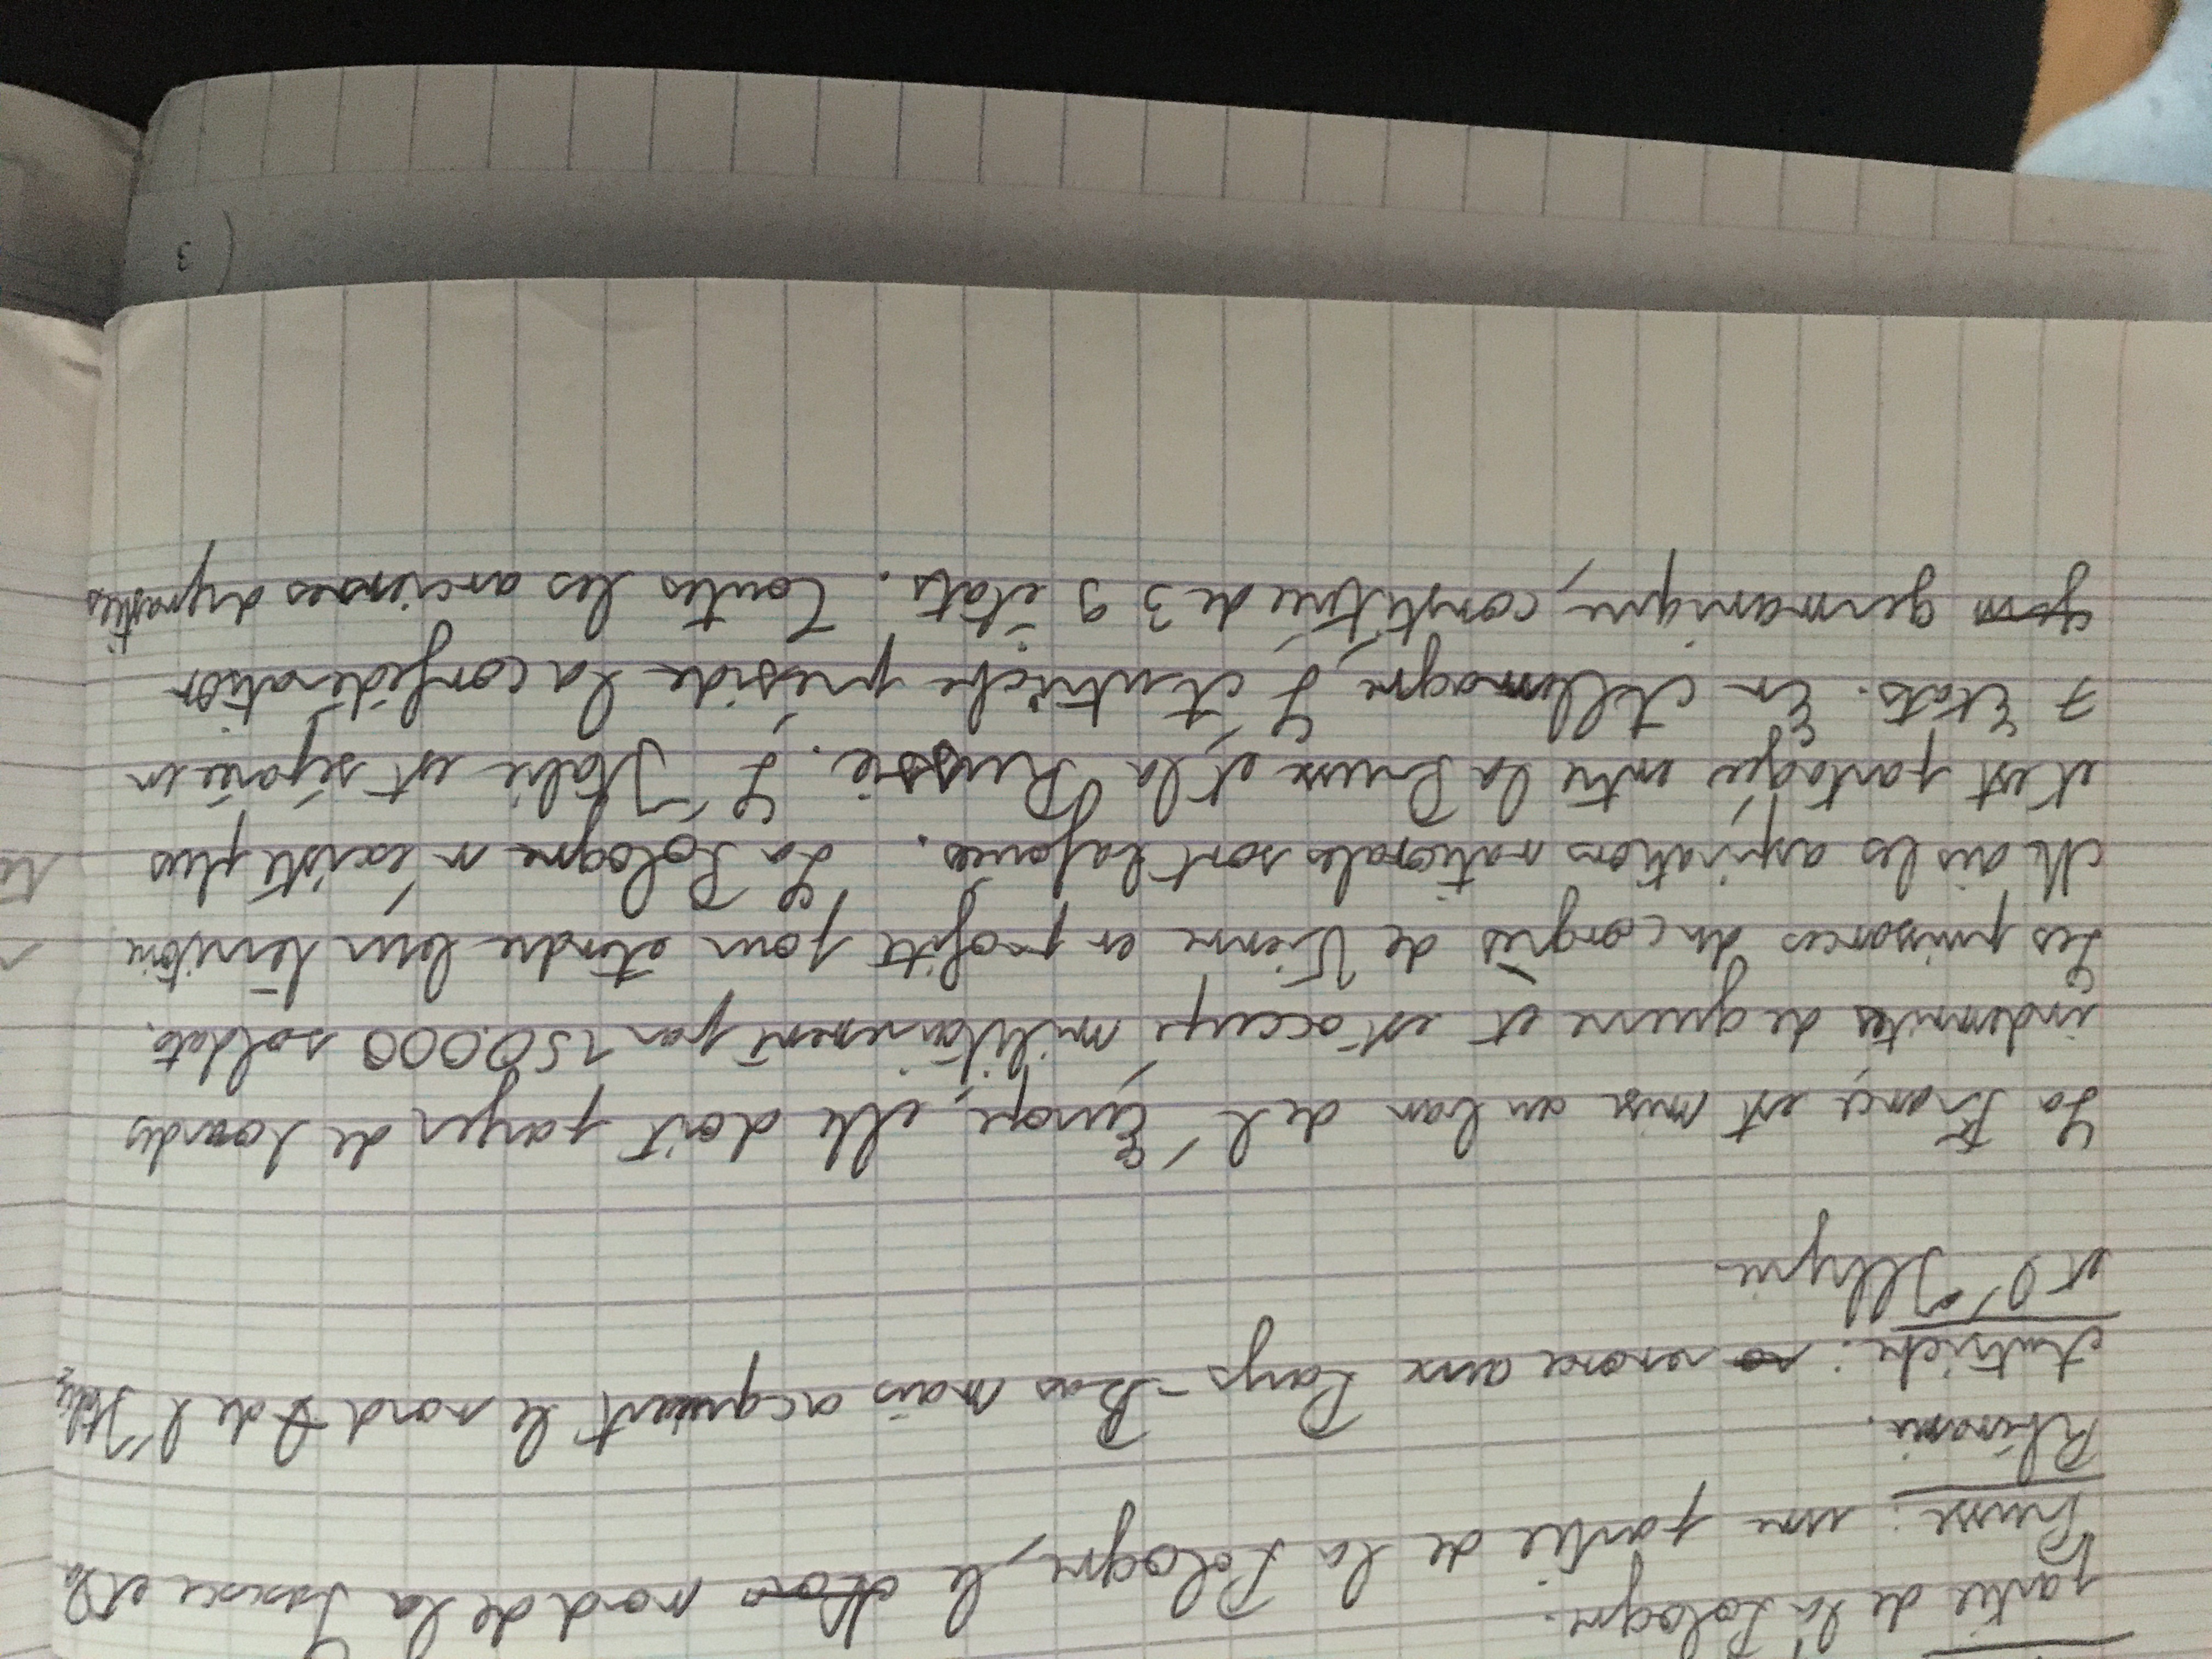 partie de la Pologne.
Prusse : une partie de la Pologne, le nord de la Saxe et la
Rhénanie.
Autriche : renonce aux Pays-Bas mais acquiert le nord de l'Italie
et l'Illyrie.
La France est mise au ban de l'Europe, elle doit payer de lourdes
indemnités de guerre et est occupé militairement par 150.000 soldats.
Les puissances du congrès de Vienne en profite pour etendre leur territoire
Mais les aspirations nationales sont bafouées. La Pologne n'éxiste plus
et est partagée entre la Prusse et la Russie. L'Italie est séparée en
7 Etats. En Allemagne, L'Autriche préside la confédération
germanique, constituée de 39 états. Toutes les anciennes dynasties
3